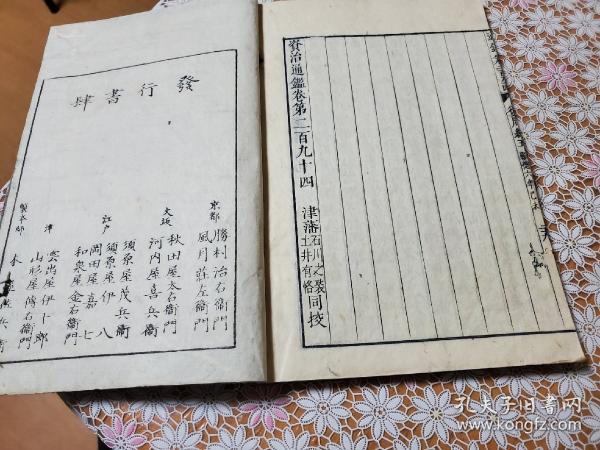 資治通鑑卷第二百九十四
津藩
石川之褧
土井有恪
同挍
發行書肆
京都
勝村治右衞門
風月莊左衞門
大坂
秋田屋太右衞門
河内屋喜兵衞
江戸
須原屋茂兵衞
須原屋伊八
岡田屋嘉七
和泉屋金右衞門
津
雲出屋伊十郎
山形屋傳右衞門
製本師
孔夫子旧书网
www.kongfz.com